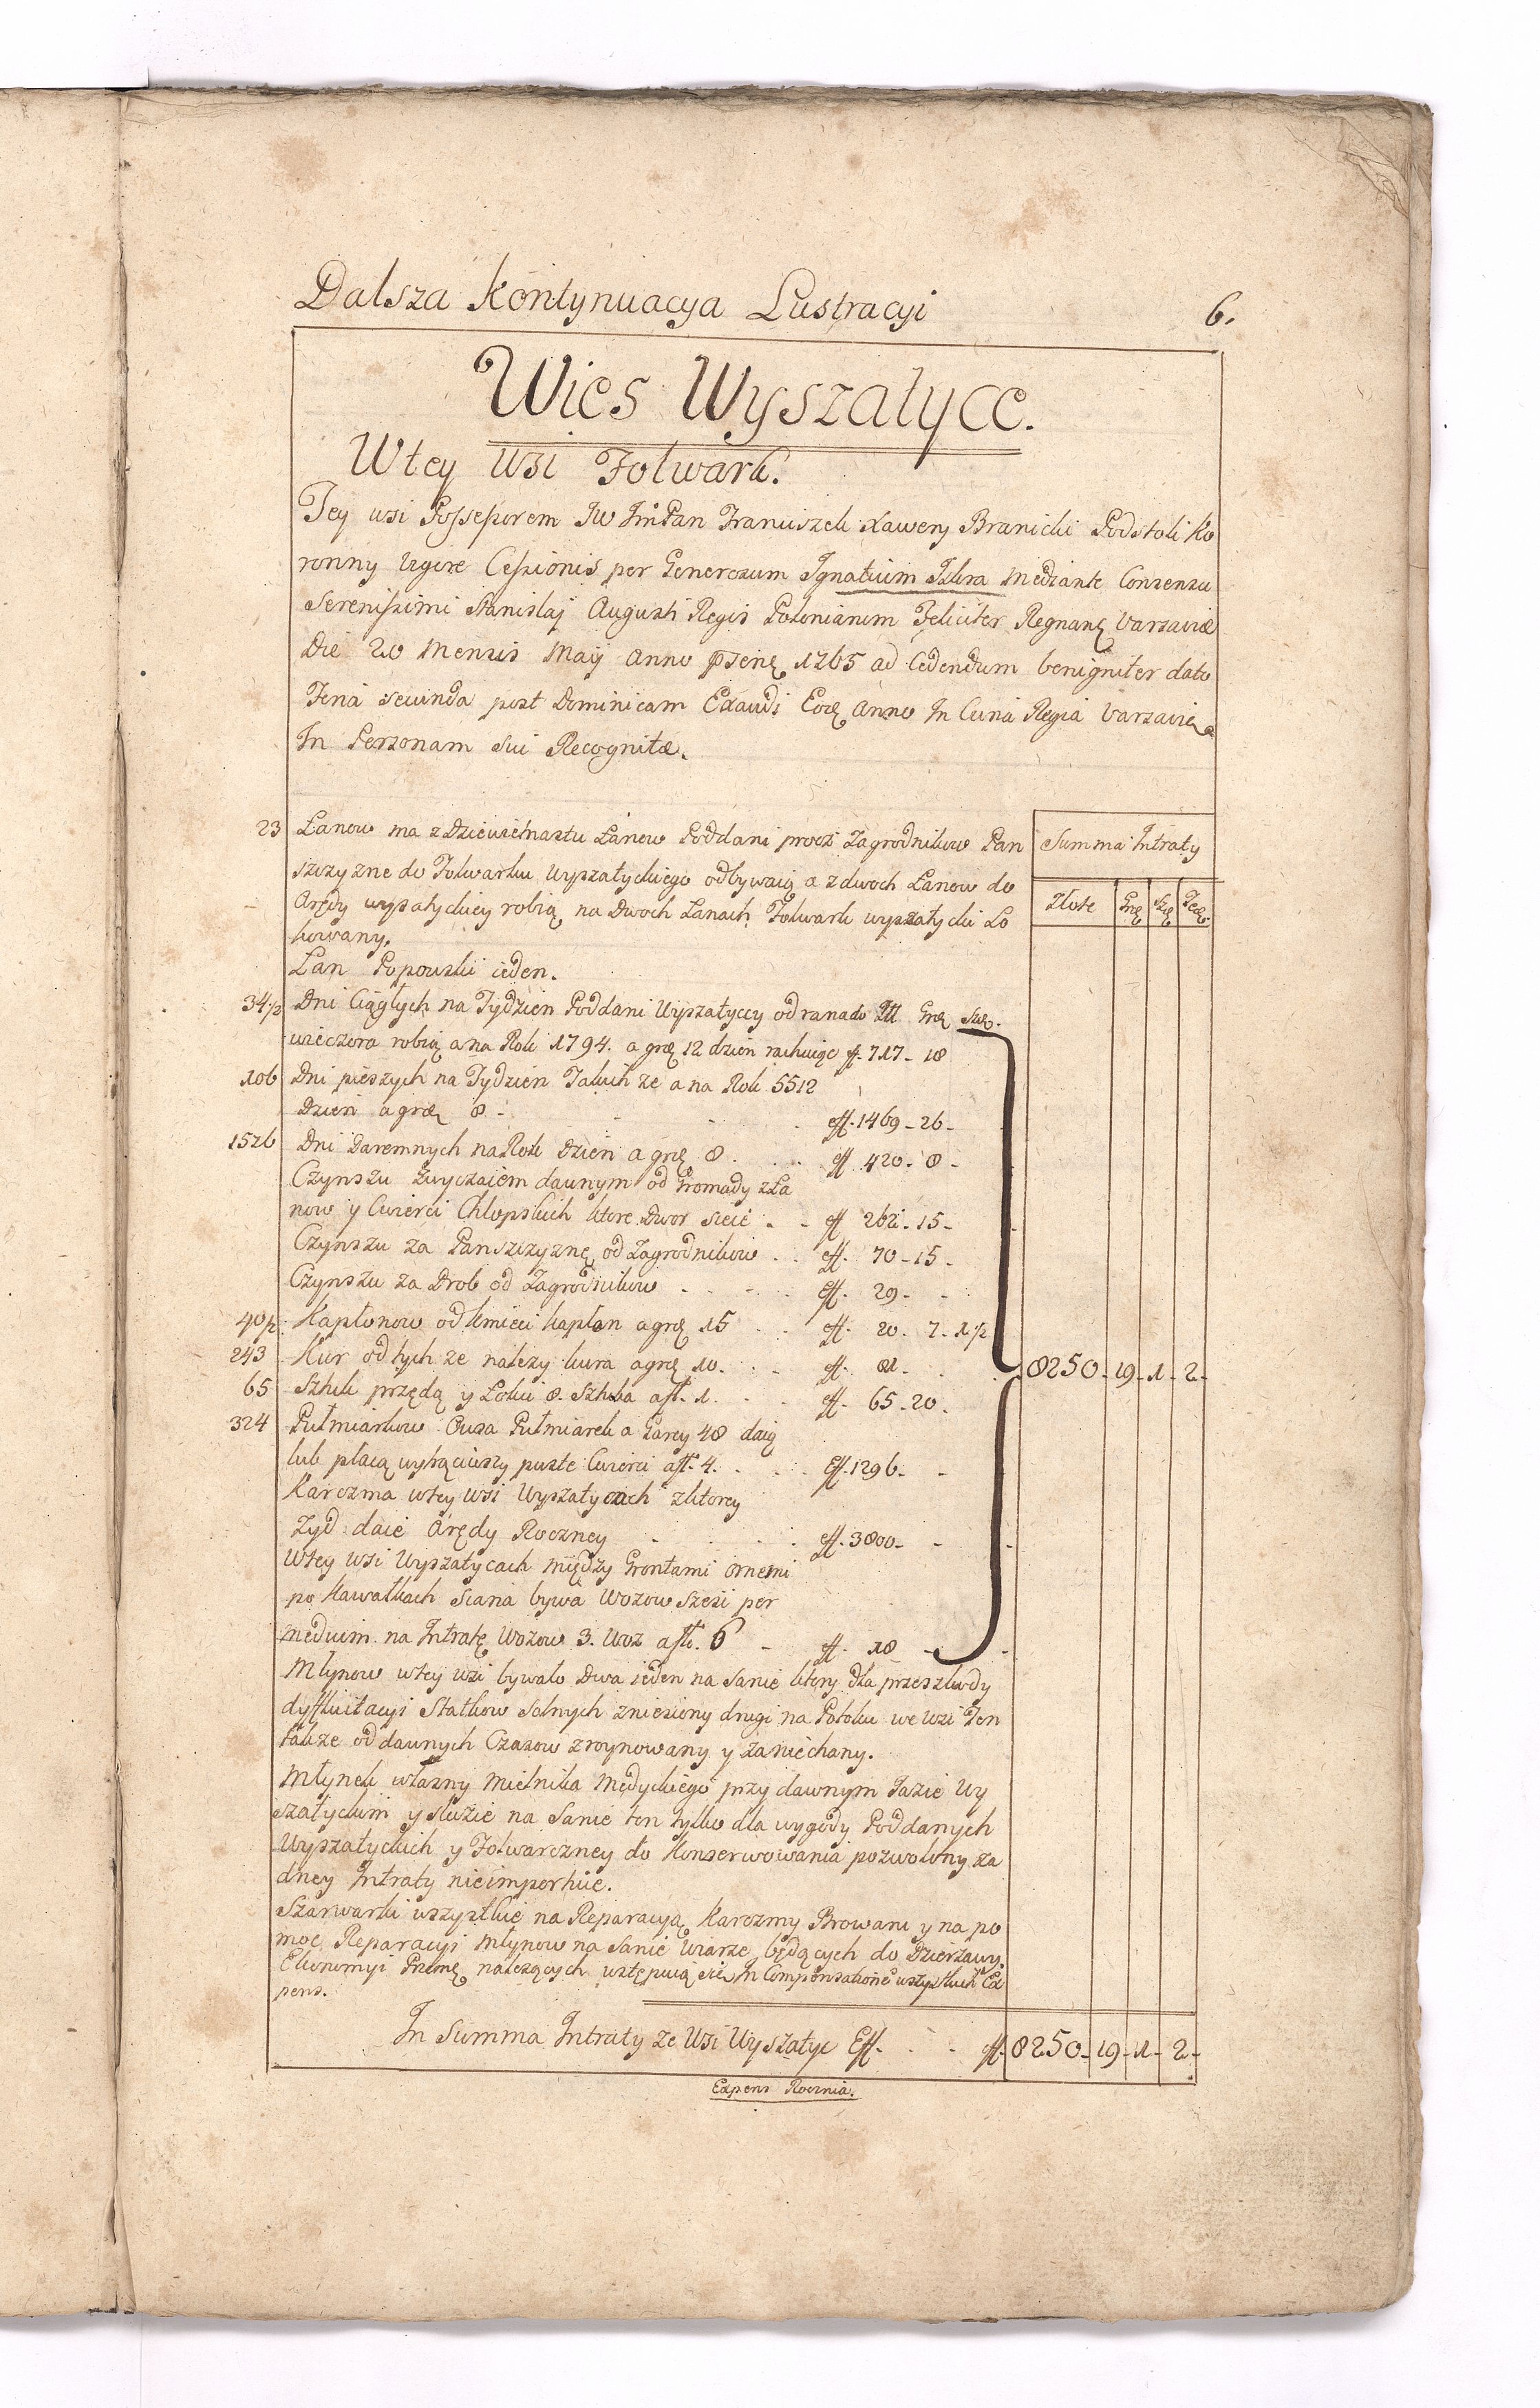 Dalsza Kontynuacya Lustracyi
6.
Wies Wyszatyce.
W tey Wsi Folwark.
Tey wsi Possessorem JW JmPan Franciszek Xawery Branicki Podstoli Ko
ronny vigore Cessionis per Generosum Ignatium mediante Consensu
Serenissimi Stanislaj Augusti Regis Poloniarum Feliciter Regnanę Varsaviæ
Die 20 Mensis Maij Anno 1765 ad Cedendum benigniter dato
Feria secunda post Dominicam Exaudi Eoę Anno In Curia Regia Varsavię
In Personam sui Recognitæ.
23 Łanow ma z Dziewietnastu Łanow Poddani procz Zagrodnikow Pan
szczyzne do Folwarku Wyszatyckiego odbywaią a z dwoch Łanow do
Arędy wyszatyckiey robią na Dwoch Łanach Folwark wyszatycki Lo
kowany.
Summa Intraty
Złote Grę Szę Zczę
Łan Popowski ieden.
34 1/2 Dni Ciągłych na Tydzien Poddani Wyszatyccy od rana do Złł Grę Szę.
wieczora robią a na Rok 1794. a grę 12 dzien rachuiąc ff. 717 - 18
106 Dni pieszych na Tydzien Takich ze a na Rok 5512
Dzien a grę 8 - ff. 1469 - 26 -
1576 Dni Daremnych na Rok dzien a grę 8 . ff. 420 - 8 -
Czynszu zwyczaiem dawnym od Gromady z Ła
now y Cwierci Chłopskich ktore Dwor sieie - ff. 262 - 15 -
Czynszu za Panszczyznę od Zagrodnikow . . ff. 70 - 15 -
Czynszu za Drob od Zagrodnikow - - - ff. 29 - -
40 1/2 Kapłonow od kmieci kapłon a grę 15 ff. 20 - 7 - 1 1/2
243 Kur od tych ze nalezy kura a grę 10 . ff. 81 .
8250 - 19 - 1 - 2 -
65 Sztuk przędą y Łokci 8. Sztuka a fł. 1. ff. 65 - 20 .
324 Pułmiarkow Owsa Pułmiarek a Garcy 48 daią
lub płacą wytrąciwszy puste Cwierci a fł. 4. ff. 1296 - -
Karczma w tey Wsi Wyszatycach z ktorey
Zyd daie Arędy Roczney - ff. 3800 - -
W tey Wsi Wyszatycach między Grontami ornemi
po kawałkach siana bywa Wozow szesc per
medium na Intratę Wozow 3. Woz a fł. 6 - ff. 18 -
Młynow w tey wsi bywało Dwa ieden na Sanie ktory dla przeszkody
dyffluitacyi Statkow Solnych zniesiony drugi na Potoku we Wsi Ten
takze od dawnych Czasow zroynowany y zaniechany.
Młynek własny Mielnika Medyckiego przy dawnym Jazie Wy
szatyckim y słuzie na Sanie ten tylko dla wygody Poddanych
Wyszatyckich y Folwarczney do Konserwowania pozwolony za
dney Intraty nieimportuie.
Szarwarki wszystkie na Reparacyą Karczmy Browaru y na po
moc Reparacyi Młynow na Sanie Wiarze będących do Dzierzawy
Ekonomyi Przmę nalezących ustępuią sie In Compensationē wszystkich Ex
pens.
In Summa Intraty ze Wsi Wyszatyc Eff. - - ff. 8250 - 19 - 1 - 2 -
Expens Rocznia.